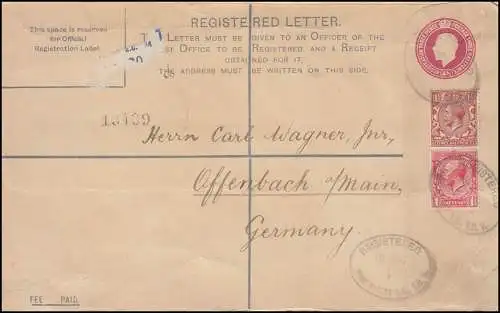 REGISTERED LETTER.
This space is reserved
for Official
Registration Label
LETTER MUST BE GIVEN TO AN OFFICER OF THE
POST OFFICE TO BE REGISTERED AND A RECEIPT
OBTAINED FOR IT.
THE ADDRESS MUST BE WRITTEN ON THIS SIDE.
Herrn Carl Wagner, Jnr,
Offenbach a/Main,
Germany.
REGISTERED
FEE PAID